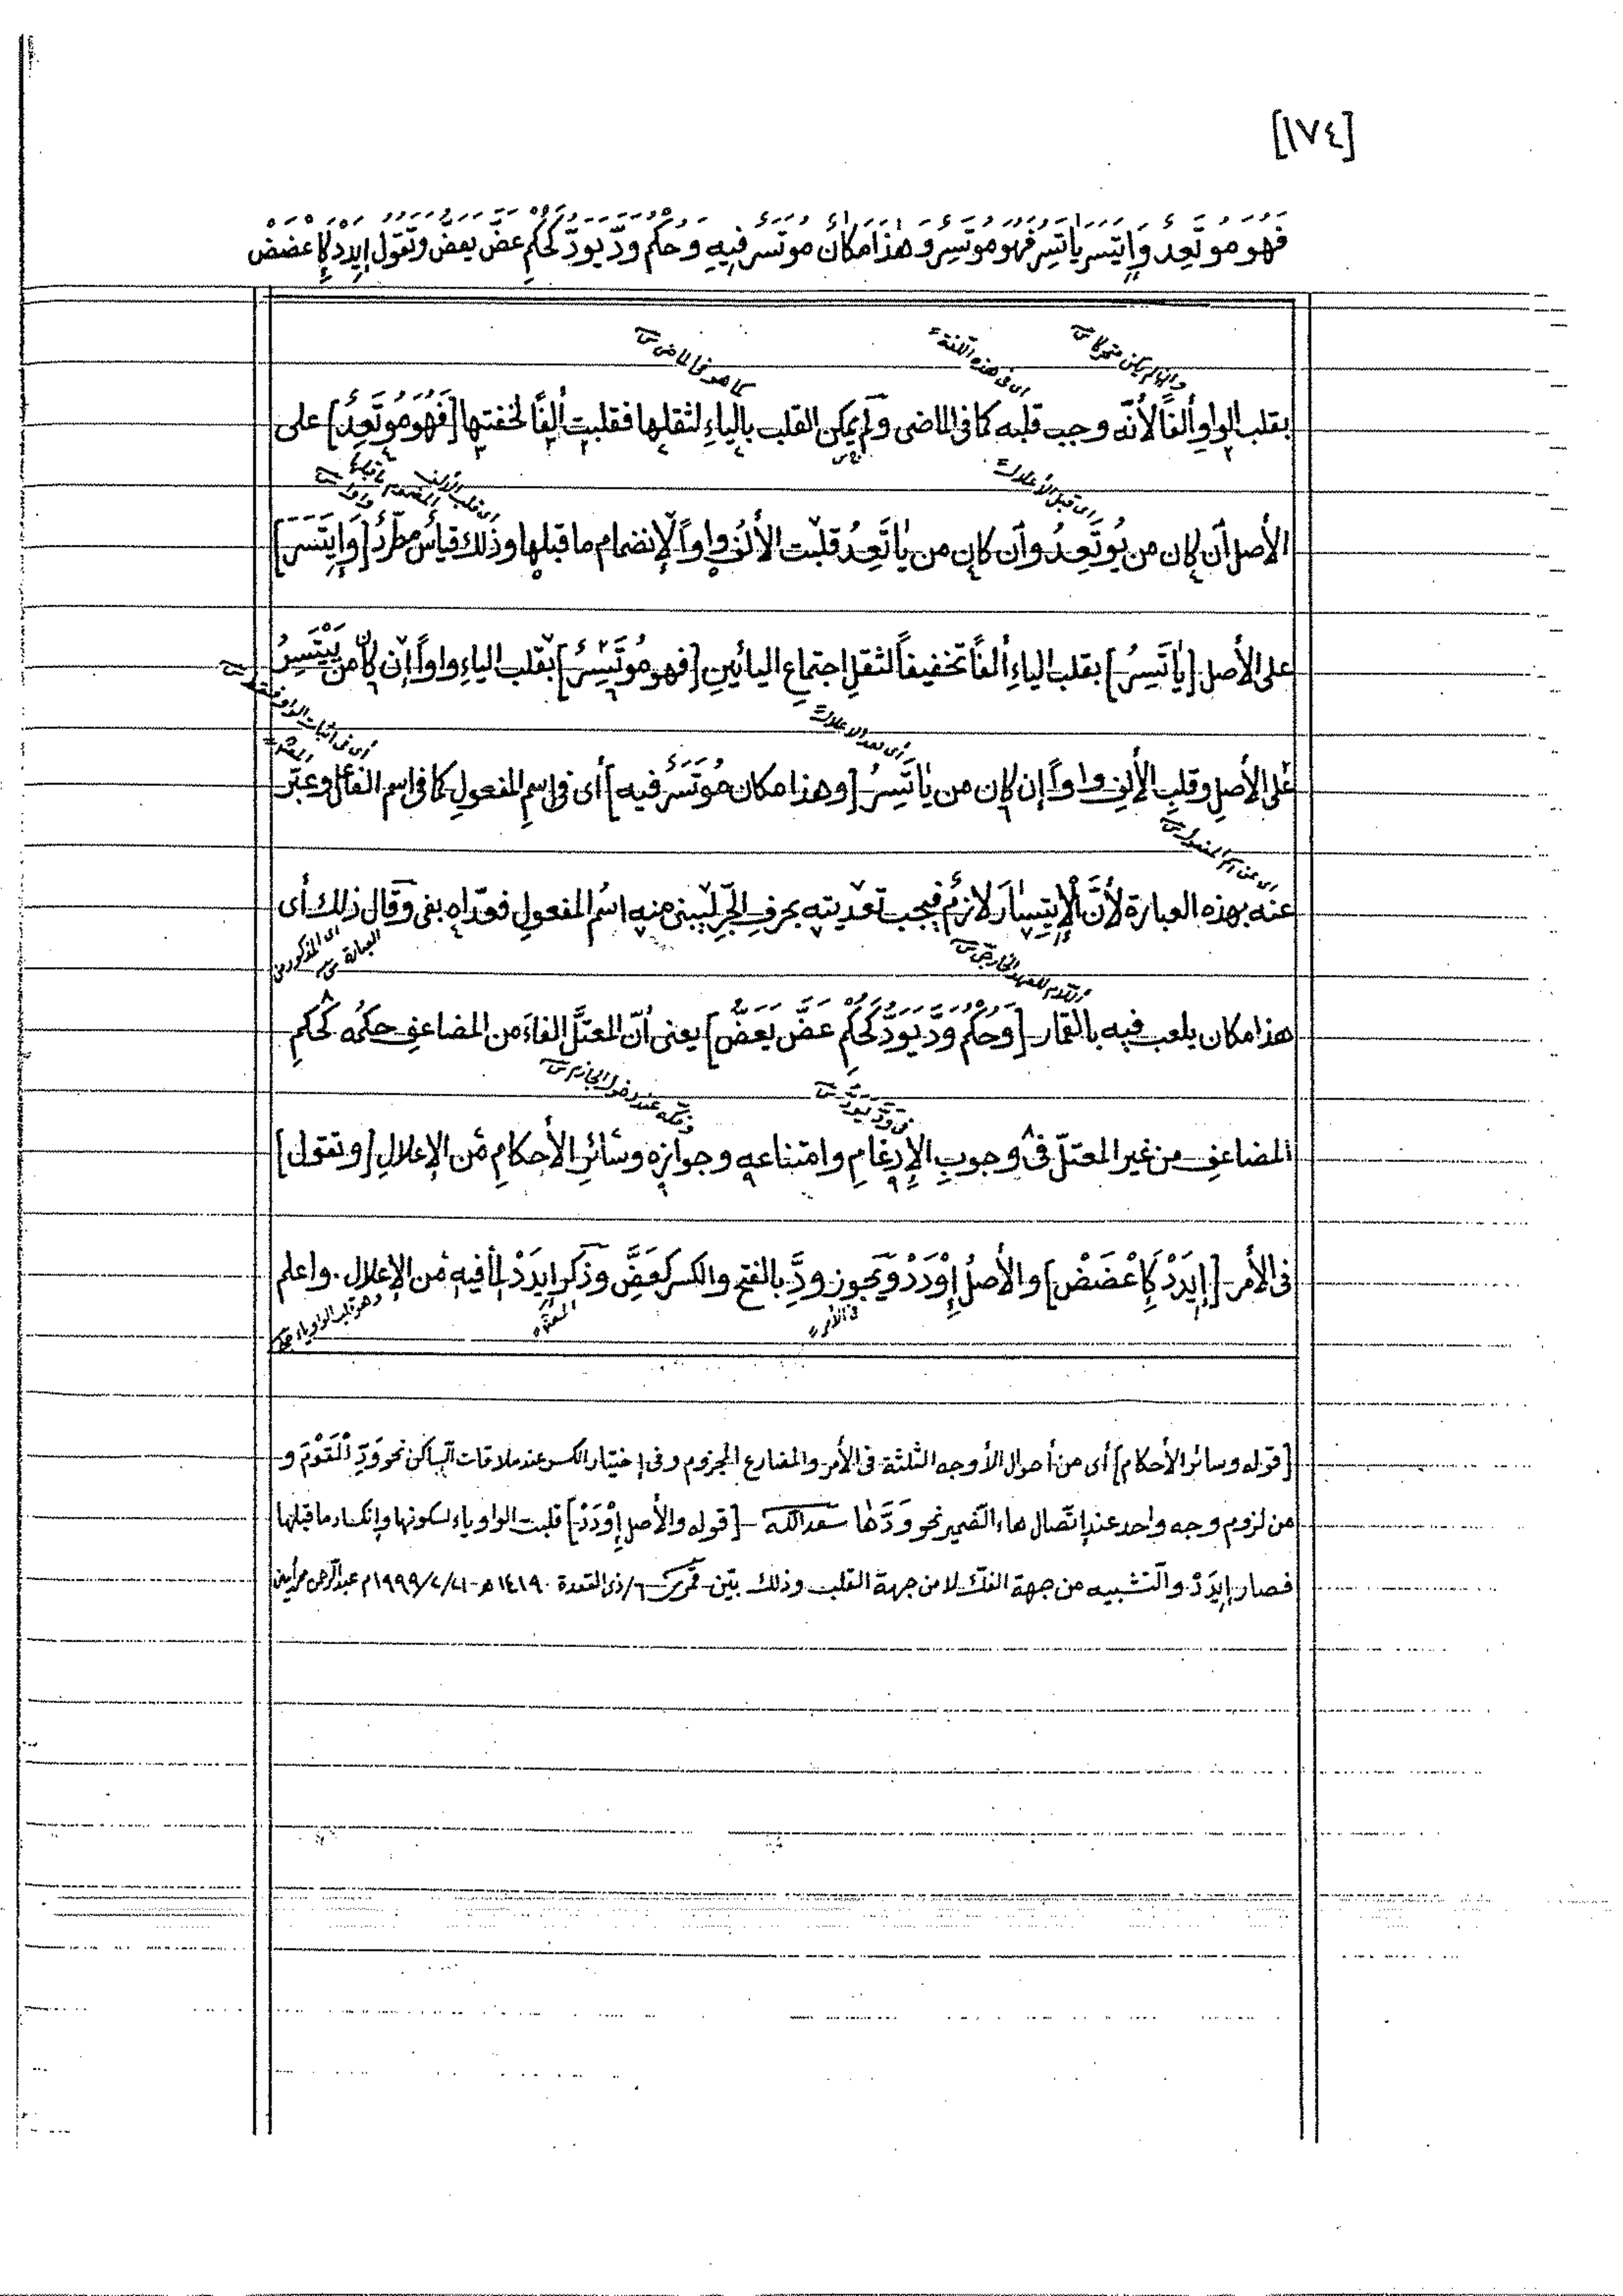 [١٧٤]
فَهُوَ مُوتَعِدٌ وَإِيتَسَرَ يَاتَسِرُ فَهُوَ مُوتَسِرٌ وَهٰذَا مَكَانٌ مُوتَسَرٌ فِيهِ وَحُكْمُ وَدَّ يَوَدُّ كَحُكْمِ عَضَّ يَعَضُّ وَتَقُولُ إِيدَدْ كَاِعْضَضْ
وإن لم يكن متحركا
أى فى هذه اللغة
كما هو فى الماضى
بقلب الواو ألفاً لأنّه وجب قلبه كما فى الماضى ولم يمكن القلب بالياءِ لثقلها فقلبت ألفًا لخفتها [فَهُوَ مُوتَعِدٌ] على
أى قبل الأعلال
أى قلب الألف المضموم ما قبلها واوا
الأصل أن كان من يُوتَعِدُ وأن كان من يَاتَعِدُ قلبت الألف واواً لإنضمام ما قبلها وذلك قياسٌ مطّردٌ [وَإِيتَسَرَ]
على الأصل [يَاتَسِرُ] بقلب الياءِ ألفاً تخفيفاً لثقلِ اجتماعِ اليائينِ [فهو مُوتَسِرٌ] بقلب الياءِ واواً إن كان من يَيْتَسِرُ
أى بعد الاعلال
على الأصلِ وقلبِ الألفِ واواً إن كان من يَاتَسِرُ [وهذا مكان مُوتَسَرٌ فيه] أى فى اسمِ المفعولِ كما فى اسم الفاعل وعبّر
أى عن اسم المفعول
عنه بهذه العبارة لأنَّ الإيتِسَارَ لازمٌ فيجب تعديته بحرفِ الجَرِّ ليبنى منه اسمُ المفعولِ فعدّاه بفى وقال ذلك أى
أى المذكور من العبارة
اللام للعهد الخارجى
هذا مكان يلعب فيه بالقمار [وَحُكْمُ وَدَّ يَوَدُّ كَحُكْمِ عَضَّ يَعَضُّ] يعنى أنّ المعتلّ الفاءَ من المضاعفِ حكمُه كحُكمِ
فى وَدَّ يَوَدُّ
وفكه عند دخول الجازم
المضاعفِ من غير المعتلّ فى وجوبِ الإدغامِ وامتناعه وجوازه وسائرِ الأحكامِ من الإعلالِ [وتقول]
فى الأمر [إيدَدْ كَاِعْضَضْ] والأصلُ إِوْدَدْ ويجوز ودَّ بالفتح والكسر كعَضَّ وذكر إيدَدْ لما فيه من الإعلال. واعلم
فى الأمر
المصنف
وهو قلب الواو ياء
[قوله وسائر الأحكام] أى من أحوال الأوجه الثلثة فى الأمر والمضارع المجزوم وفى إختيار الكسر عند ملاقات الساكن نحو وَدِّ الْقَوْمَ و
من لزوم وجه واحد عند إتّصال هاء الضمير نحو وَدَّهَا سعد الله - [قوله والأصل إِوْدَدْ] قلبت الواو ياء لسكونها وإنكسار ما قبلها
فصار إيدَدْ والتشبيه من جهة الفك لا من جهة القلب وذلك بيّن ٦/ذى القعدة ١٤١٩ هـ - ٢١/٢/١٩٩٩م عبد الرحمن